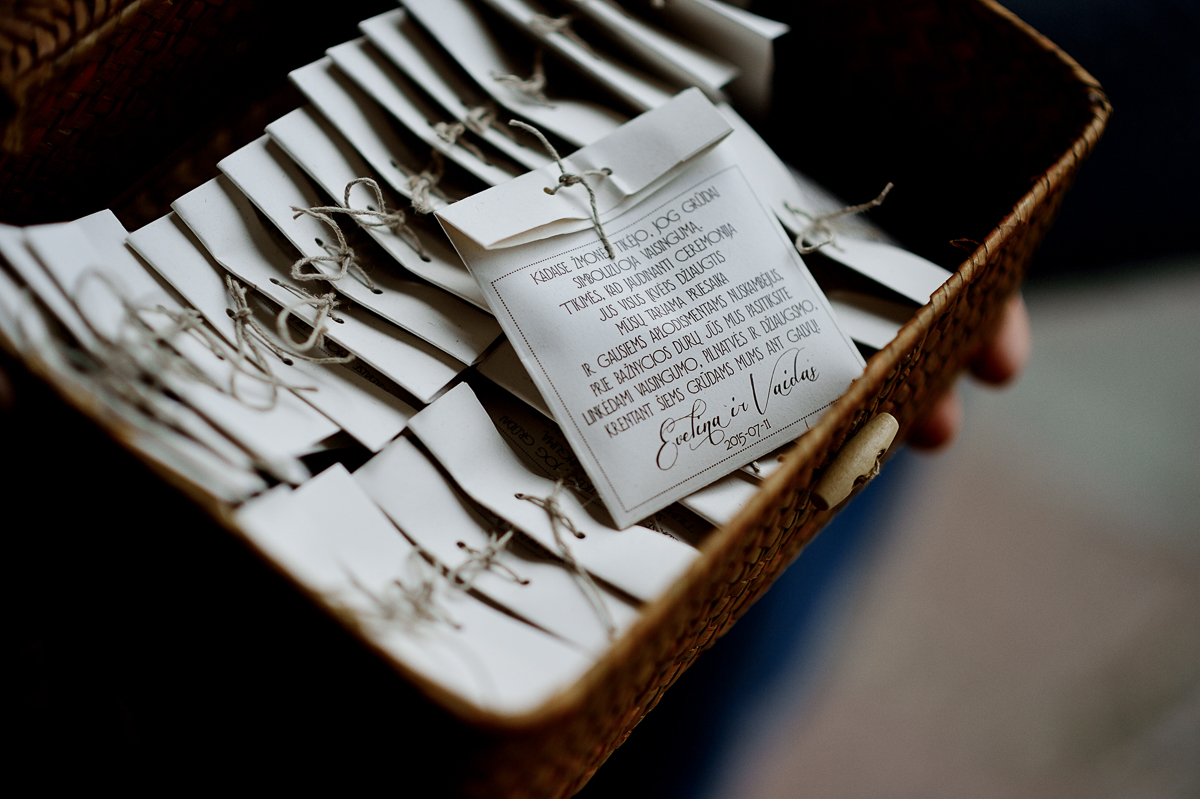 KADAISE ŽMONĖS TIKĖJO, JOG GRŪDAI
SIMBOLIZUOJA VAISINGUMĄ.
TIKIMĖS, KAD JAUDINANTI CEREMONIJA
JUS VISUS ĮKVĖPS DŽIAUGTIS
MŪSŲ TARIAMA PRIESAIKA
IR GAUSIEMS APLODISMENTAMS NUSKAMBĖJUS,
PRIE BAŽNYČIOS DURŲ JŪS MUS PASITIKSITE
LINKĖDAMI VAISINGUMO, PILNATVĖS IR DŽIAUGSMO,
KRENTANT ŠIEMS GRŪDAMS MUMS ANT GALVŲ!
Evelina ir Vaidas
2015-07-11